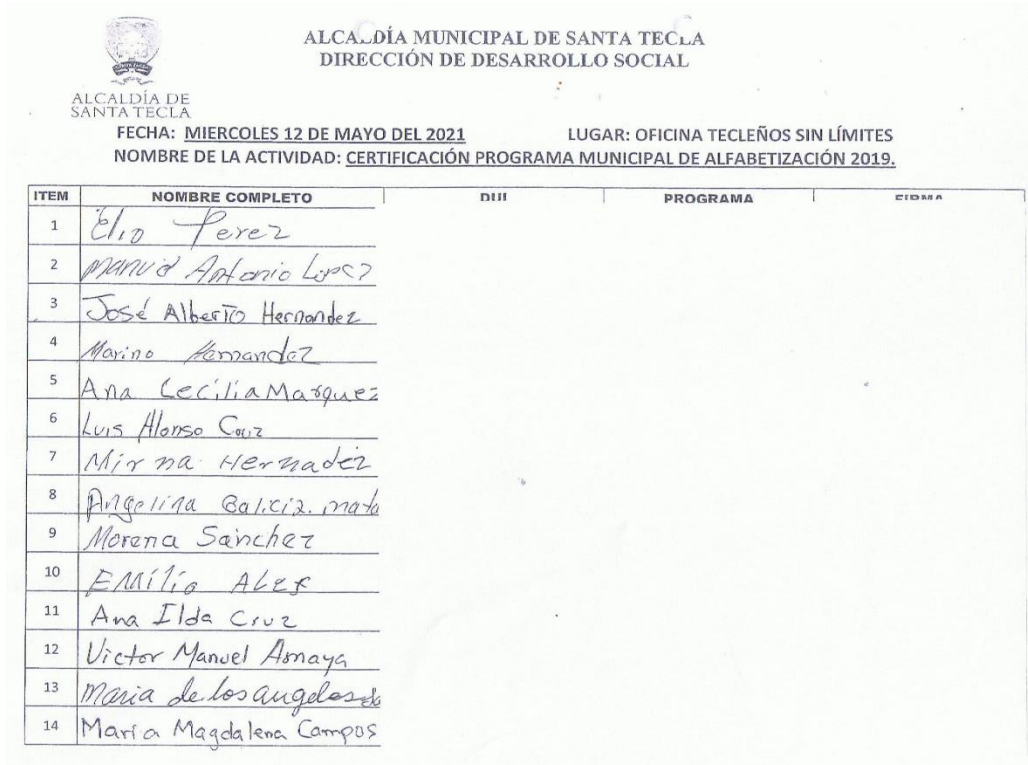 ALCALDÍA MUNICIPAL DE SANTA TECLA
DIRECCIÓN DE DESARROLLO SOCIAL
ALCALDÍA DE
SANTA TECLA
FECHA: MIERCOLES 12 DE MAYO DEL 2021 LUGAR: OFICINA TECLEÑOS SIN LÍMITES
NOMBRE DE LA ACTIVIDAD: CERTIFICACIÓN PROGRAMA MUNICIPAL DE ALFABETIZACIÓN 2019.
ITEM NOMBRE COMPLETO DUI PROGRAMA FIRMA
1 Elio Perez
2 Manuel Antonio Lopez
3 José Alberto Hernandez
4 Marino Hernandez
5 Ana Cecilia Marquez
6 Luis Alonso Cruz
7 Mirna Hernadez
8 Angelina Galicia mata
9 Morena Sánchez
10 EMilio ALex
11 Ana Ilda Cruz
12 Victor Manuel Amaya
13 Maria de los angeles
14 María Magdalena Campos